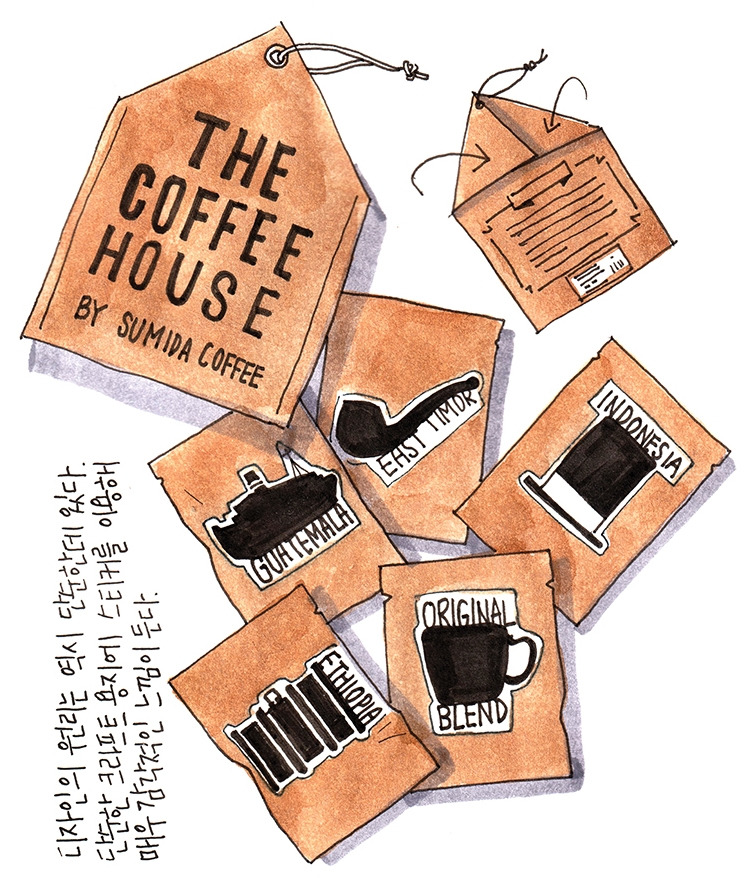 THE
COFFEE
HOUSE
BY SUMIDA COFFEE
EAST TIMOR
INDONESIA
GUATEMALA
ORIGINAL
BLEND
ETHIOPIA
디자인의 원리는 역시 단순한데 있다.
단순한 크라프트 용지에 스티커를 이용해
매우 감각적인 느낌이 든다.